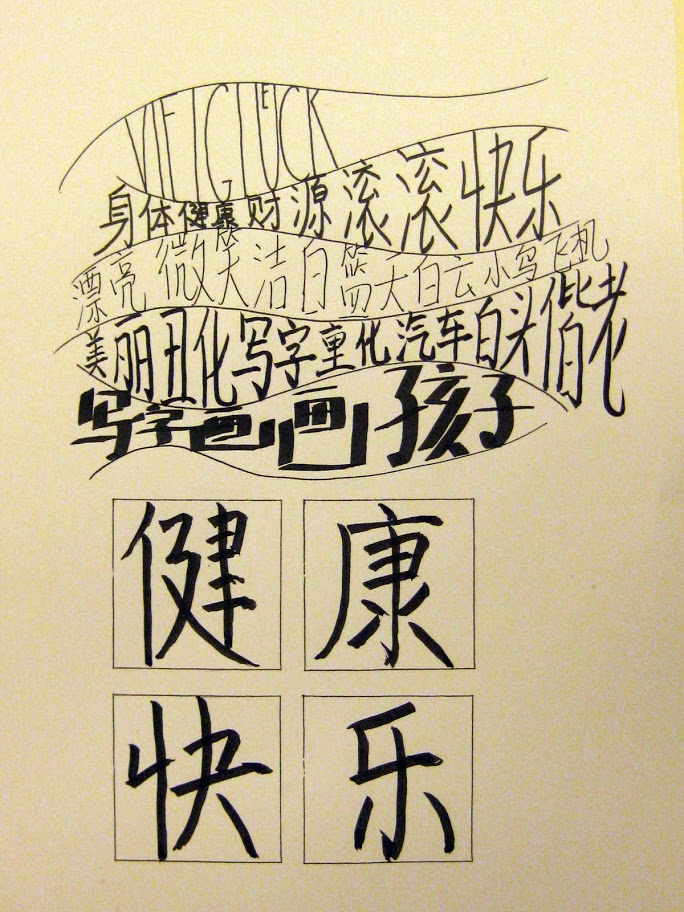 身体健康财源滚滚快乐
漂亮微笑洁白蓝天白云小鸟飞机
美丽丑化写字重化汽车白头偕老
写字画画孩子
健康
快乐